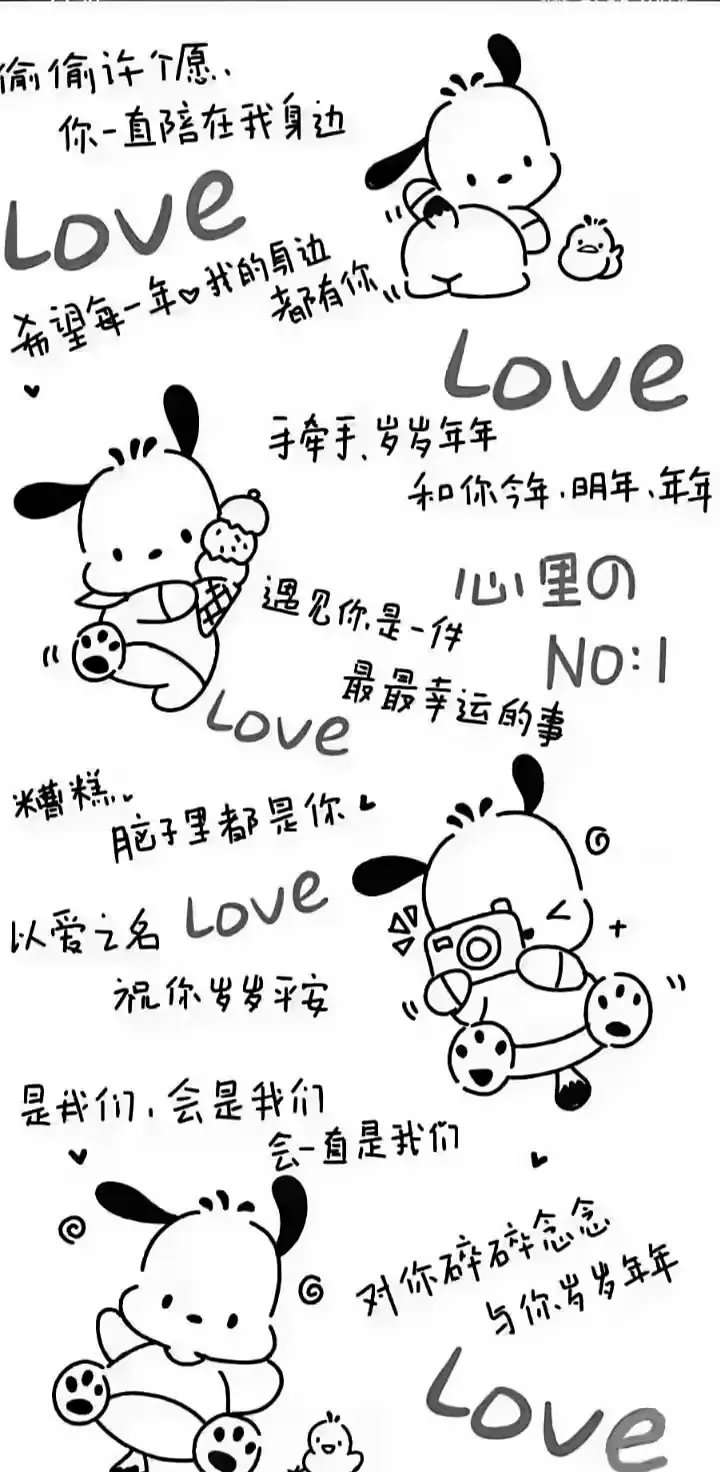 偷偷许个愿、
你一直陪在我身边
Love
希望每一年♥我的身边
都有你
Love
手牵手、岁岁年年
和你今年、明年、年年
心里の
NO:1
遇见你是一件
最最幸运的事
Love
糟糕、
脑子里都是你
以爱之名
Love
祝你岁岁平安
是我们、会是我们
会一直是我们
对你碎碎念念
与你岁岁年年
Love